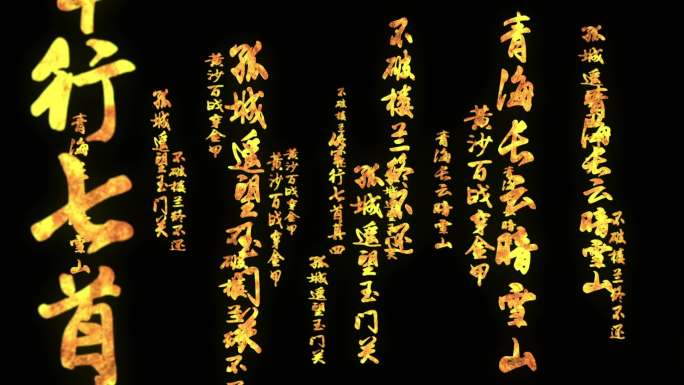 军行七首
青海长云暗雪山
孤城遥望玉门关
不破楼兰终不还
黄沙百战穿金甲
孤城遥望玉门关
不破楼兰终不还
黄沙百战穿金甲
黄沙百战穿金甲
孤城遥望玉门关
不破楼兰
从军行七首其四
孤城遥望玉门关
不破楼兰终不还
青海长云暗雪山
黄沙百战穿金甲
青海长云暗雪山
孤城遥
青海长云暗雪山
不破楼兰终不还